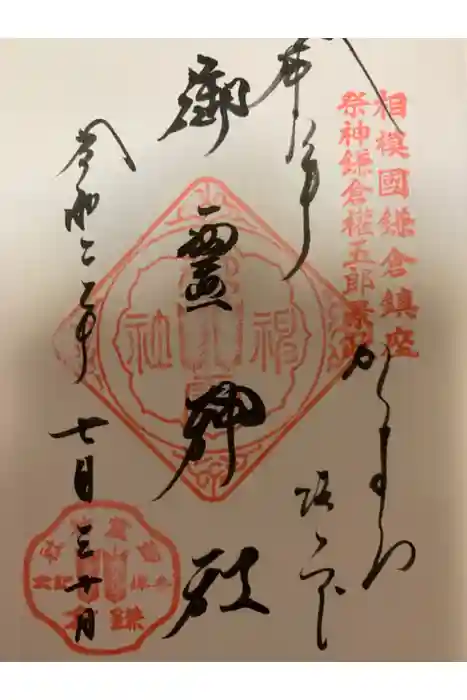 相模國鎌倉鎮座
祭神鎌倉權五郎景政
奉拝
かまくら
坂ノ下
御霊神社
令和二年
七月三十日